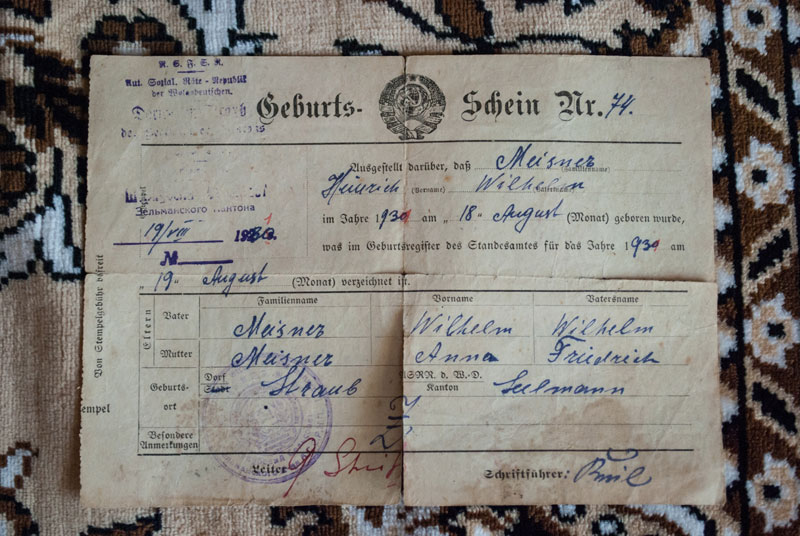 R.S.F.S.R.
Aut. Sozial. Räte-Republik
der Wolgadeutschen.
Geburts-Schein Nr. 74.
Ausgestellt darüber, daß Meisner
(Familienname)
Heinrich (Vorname) Wilhelm (Vatersname)
Зельманского Кантона
im Jahre 1931 am "18" August (Monat) geboren wurde,
19/VIII
was im Geburtsregister des Standesamtes für das Jahre 1931 am
№
"19" August (Monat) verzeichnet ist.
Von Stempelgebühr befreit
Stempel
Eltern
Familienname Vorname Vatersname
Vater Meisner Wilhelm Wilhelm
Mutter Meisner Anna Friedrich
Geburtsort
Dorf Stadt Straub
ASRR. d. W.-D. Kanton Seelmann
Besondere Anmerkungen
Leiter
Schriftführer: